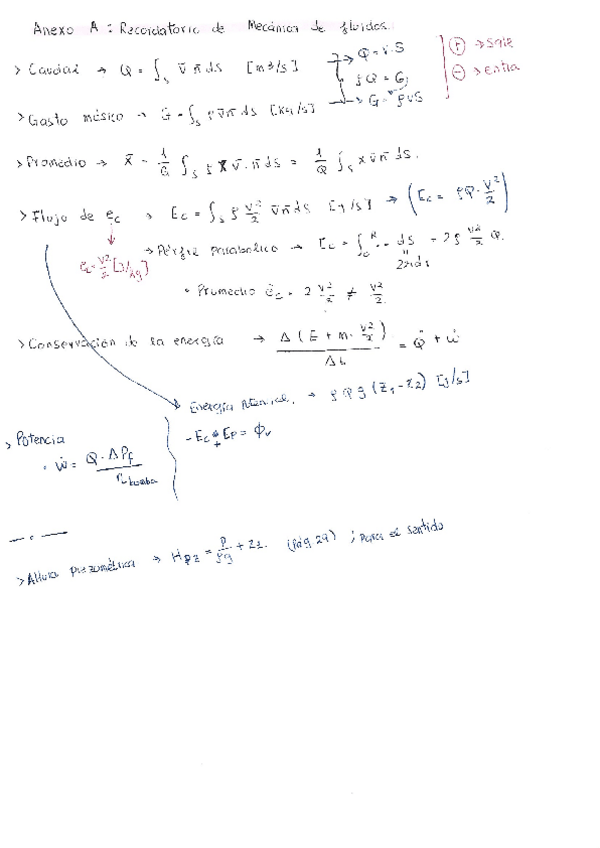 Anexo A : Recordatorio de Mecánica de fluidos.
> Caudal → Q = ∫s v̄ n̄ ds [m³/s] → Q = v·S
ρQ = G
→ G = ρvS
⊕ → sale
⊖ → entra
> Gasto másico → G = ∫s ρ v̄ n̄ ds [kg/s]
> Promedio → x̄ = 1/G ∫s ρ x v̄·n̄ ds = 1/Q ∫s x v̄ n̄ ds.
> Flujo de ec → Ec = ∫s ρ v²/2 v̄ n̄ ds [J/s] → (Ec = ρQ· v²/2)
ec = v²/2 [J/kg]
→ Perfil parabolico → Ec = ∫₀ᴿ ... ds = 2ρ v²/2 Q.
2πrds
• Promedio ec = 2 v²/2 ≠ v²/2
> Conservación de la energía → Δ(E + m· v²/2)/Δt = Q̇ + ẇ
Energía Potencial. → ρQg(z₁-z₂) [J/s]
- Ec + Ep = ϕv
> Potencia
• ẇ = Q·ΔPf / η bomba
> Altura piezométrica → Hpz = P/ρg + z₂. (Pág 29) ; Para el sentido